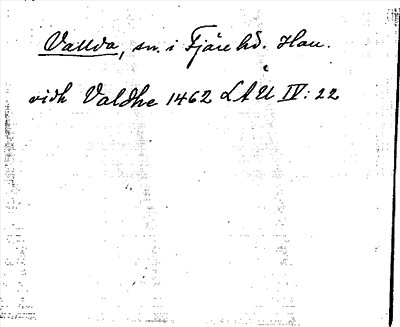 Vallda, sn. i Fjäre hd. Hall.
vidh Valdhe 1462 LÅU IV: 22